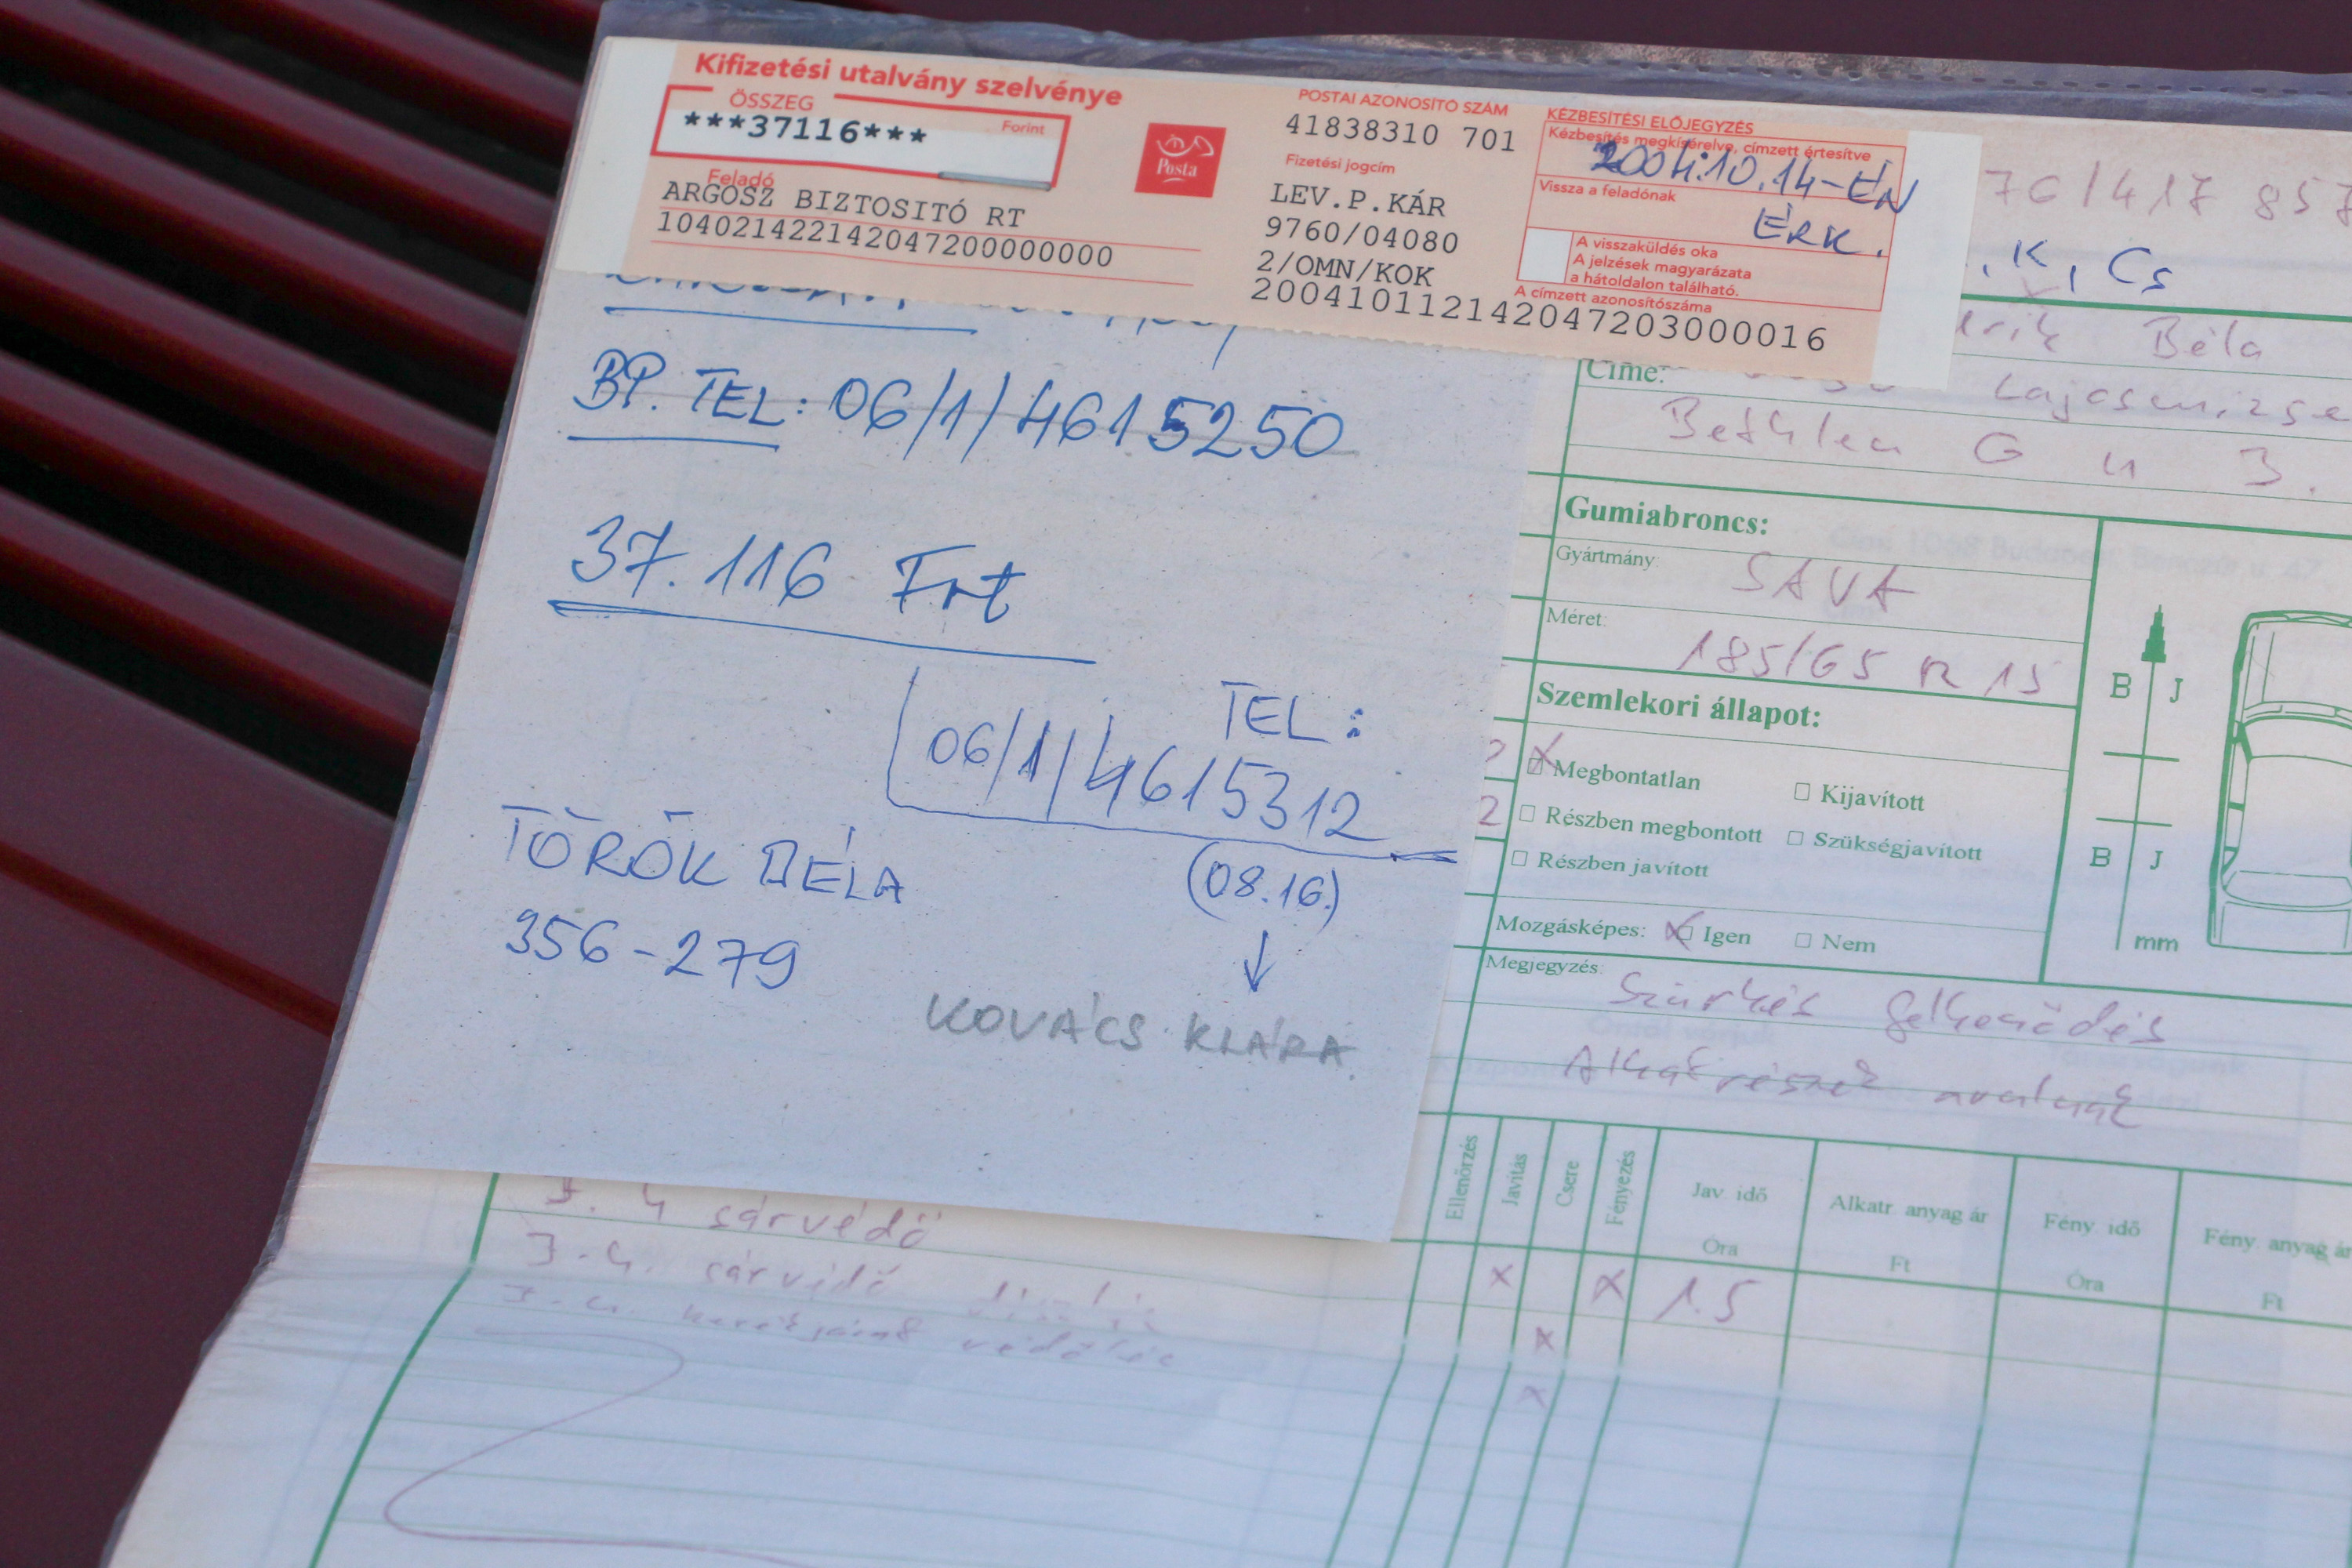 Kifizetési utalvány szelvénye
ÖSSZEG
***37116***
Forint
Feladó
ARGOSZ BIZTOSITÓ RT
104021422142047200000000
Posta
POSTAI AZONOSÍTÓ SZÁM
41838310 701
Fizetési jogcím
LEV.P.KÁR
9760/04080
2/OMN/KOK
KÉZBESÍTÉSI ELŐJEGYZÉS
Kézbesítés megkísérelve, címzett értesítve
2004.10.14-ÉN
Vissza a feladónak
ÉRK.
A visszaküldés oka
A jelzések magyarázata
a hátoldalon található.
A címzett azonosítószáma
200410112142047203000016
BP. TEL: 06/1/4615250
37.116 Frt
TEL:
06/1/4615312
(08.16.)
TÖRÖK BÉLA
356-279
KOVÁCS KLÁRA
76/417 857
, K, Cs
Béla
Címe: Lajosmizse
Bethlen G u 3.
Gumiabroncs:
Gyártmány: SAVA
Méret: 185/65 R 15
Szemlekori állapot:
Megbontatlan
Kijavított
Részben megbontott
Szükségjavított
Részben javított
Mozgásképes: Igen Nem
B J
B J
mm
Megjegyzés: Szürkés
Ellenőrzés
Javítás
Csere
Fényezés
Jav. idő
Óra
Alkatr. anyag ár
Ft
Fény. idő
Óra
Fény. anyag ár
Ft
J. 4 sárvédő
X X 1.5
J. 4. sárvédő
X
X